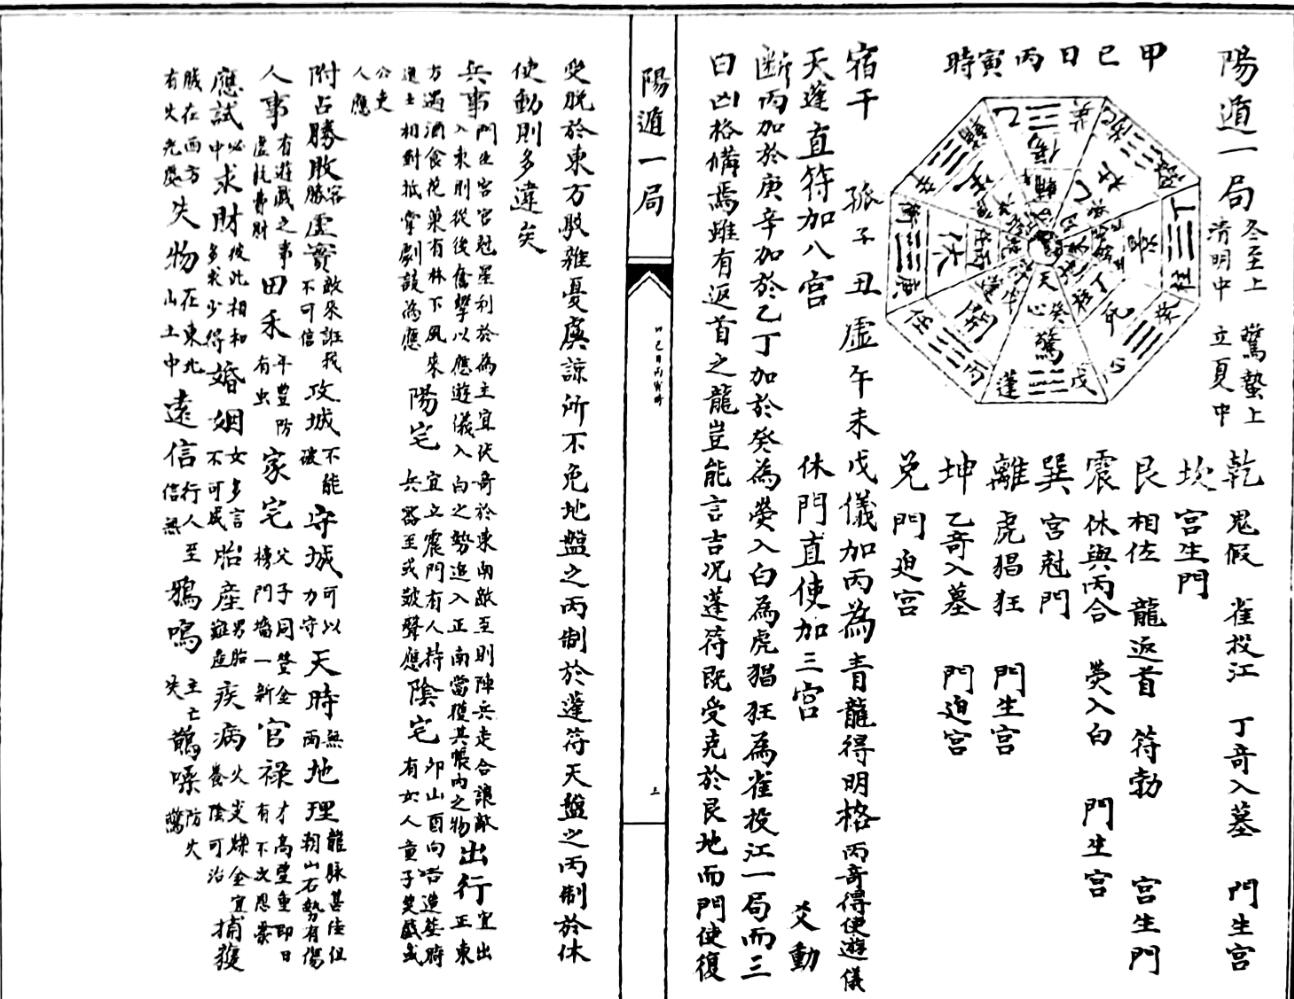 陽遁一局 冬至上 驚蟄上 清明中 立夏中
甲己日丙寅時
乾 鬼假 雀投江 丁奇入墓 門生宮
坎 宮生門
艮 相佐 龍返首 符勃 宮生門
震 休與丙合 熒入白 門生宮
巽 宮尅門
離 虎猖狂 門生宮
坤 乙奇入墓 門迫宮
兌 門迫宮
宿干 孤子丑 虛午未 戊儀加丙為青龍得明格丙奇得使遊儀
天蓬直符加八宮 休門直使加三宮 爻動
斷丙加於庚辛加於乙丁加於癸為熒入白為虎猖狂為雀投江一局而三
白凶格備焉雖有返首之龍豈能言吉況蓬符既受克於艮地而門使復
陽遁一局
甲己日丙寅時
上
受脫於東方駁雜憂虞諒所不免地盤之丙制於蓬符天盤之丙制於休
使動則多違矣
兵事 門生宮宮尅星利於為主宜伏奇於東南敵至則陣兵走合讓敵入東則從後奮擊以應遊儀入白之勢追入正南當獲其帳內之物 出行 宜出正東
方遇酒食花菓有林下風來進士相對抵掌劇談為應 陽宅 宜立震門有人持兵器至或鼓聲應 陰宅 卯山酉向吉造塟時有女人童子笑戲或
公吏人應
附占勝敗 客勝 虛實 敵來誑我不可信 攻城 不能破 守城 可以力守 天時 無雨 地理 龍脉甚佳但朝山石勢有傷
人事 有遊戲之事虛耗費財 田禾 年豊防有虫 家宅 父子同登金榜門墻一新 官祿 才高望重即日有不次恩榮
應試 必中 求財 彼此相和多求少得 婚姻 女多言不可成 胎產 男胎難產 疾病 火炎爍金宜養陰可治 捕獲
賊在西方有火光處 失物 在東北山土中 遠信 行人至信無 鴉鳴 主亡失 鵲噪 防火驚